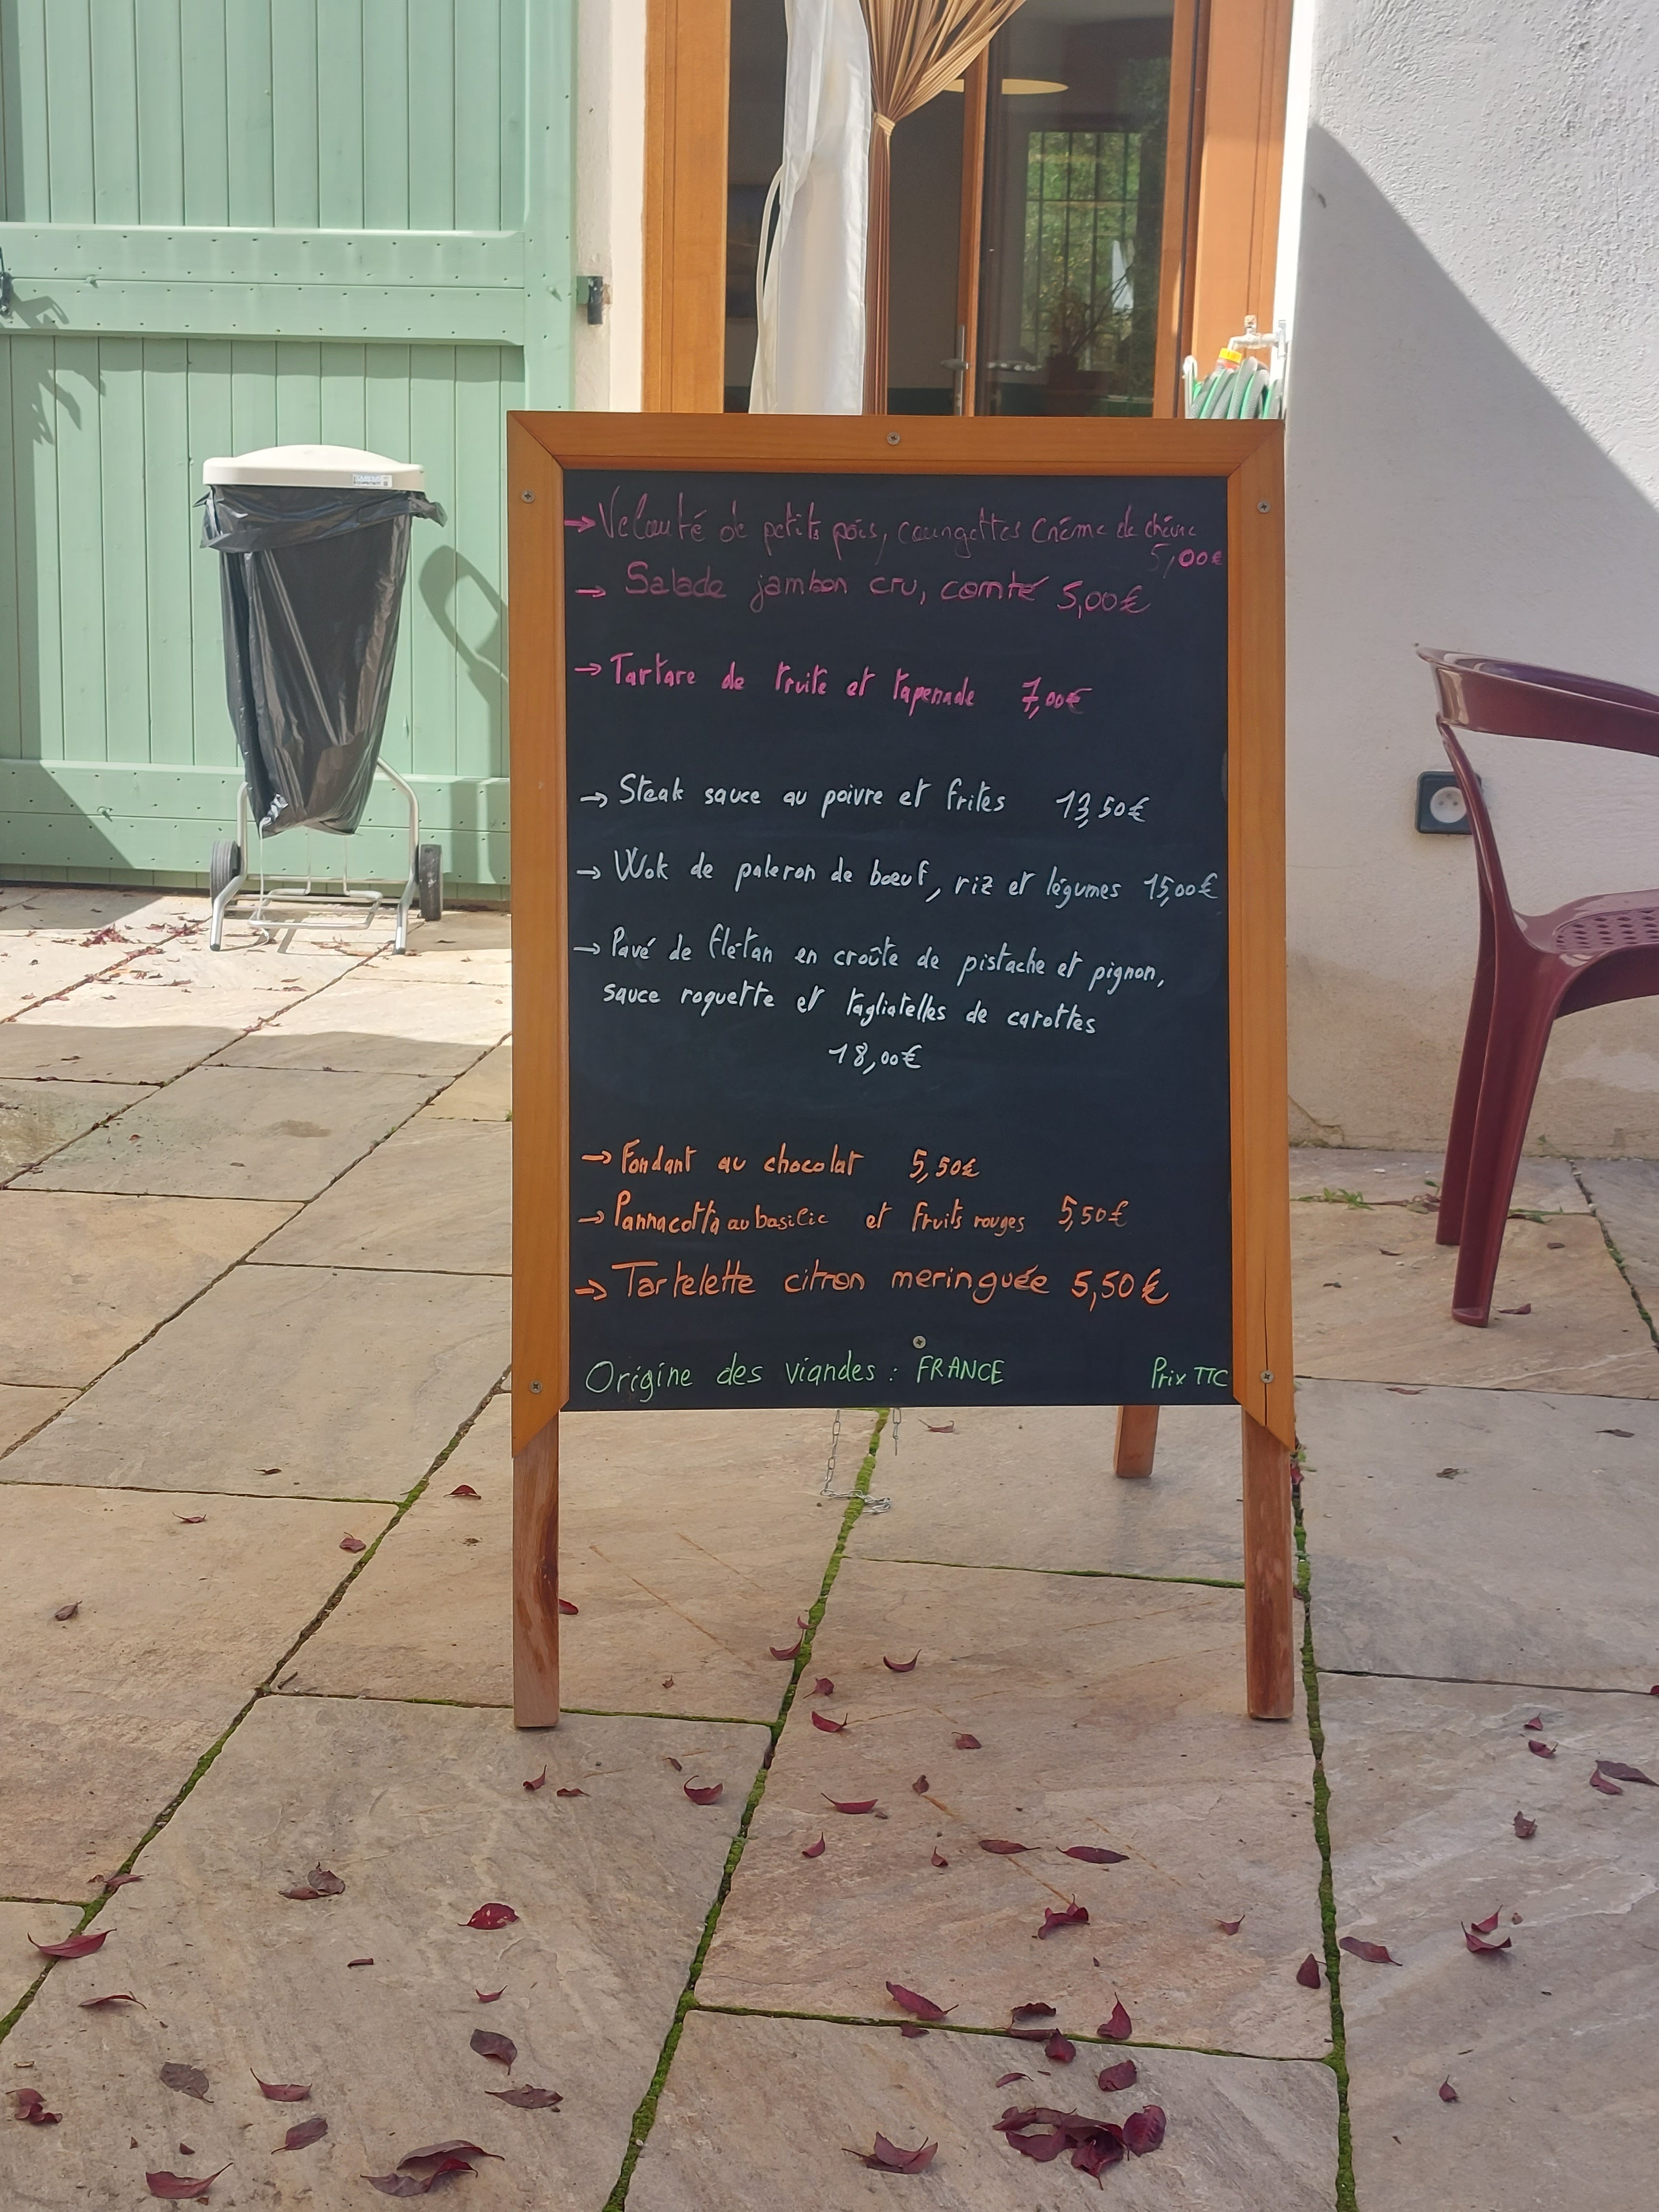 → Velouté de petits pois, courgettes Crème de chèvre
5,00€
→ Salade jambon cru, comté 5,00€
→ Tartare de truite et tapenade 7,00€
→ Steak sauce au poivre et frites 13,50€
→ Wok de paleron de bœuf, riz et légumes 15,00€
→ Pavé de flétan en croûte de pistache et pignon,
sauce roquette et tagliatelles de carottes
18,00€
→ Fondant au chocolat 5,50€
→ Pannacotta au basilic et fruits rouges 5,50€
→ Tartelette citron meringuée 5,50€
Origine des viandes : FRANCE Prix TTC